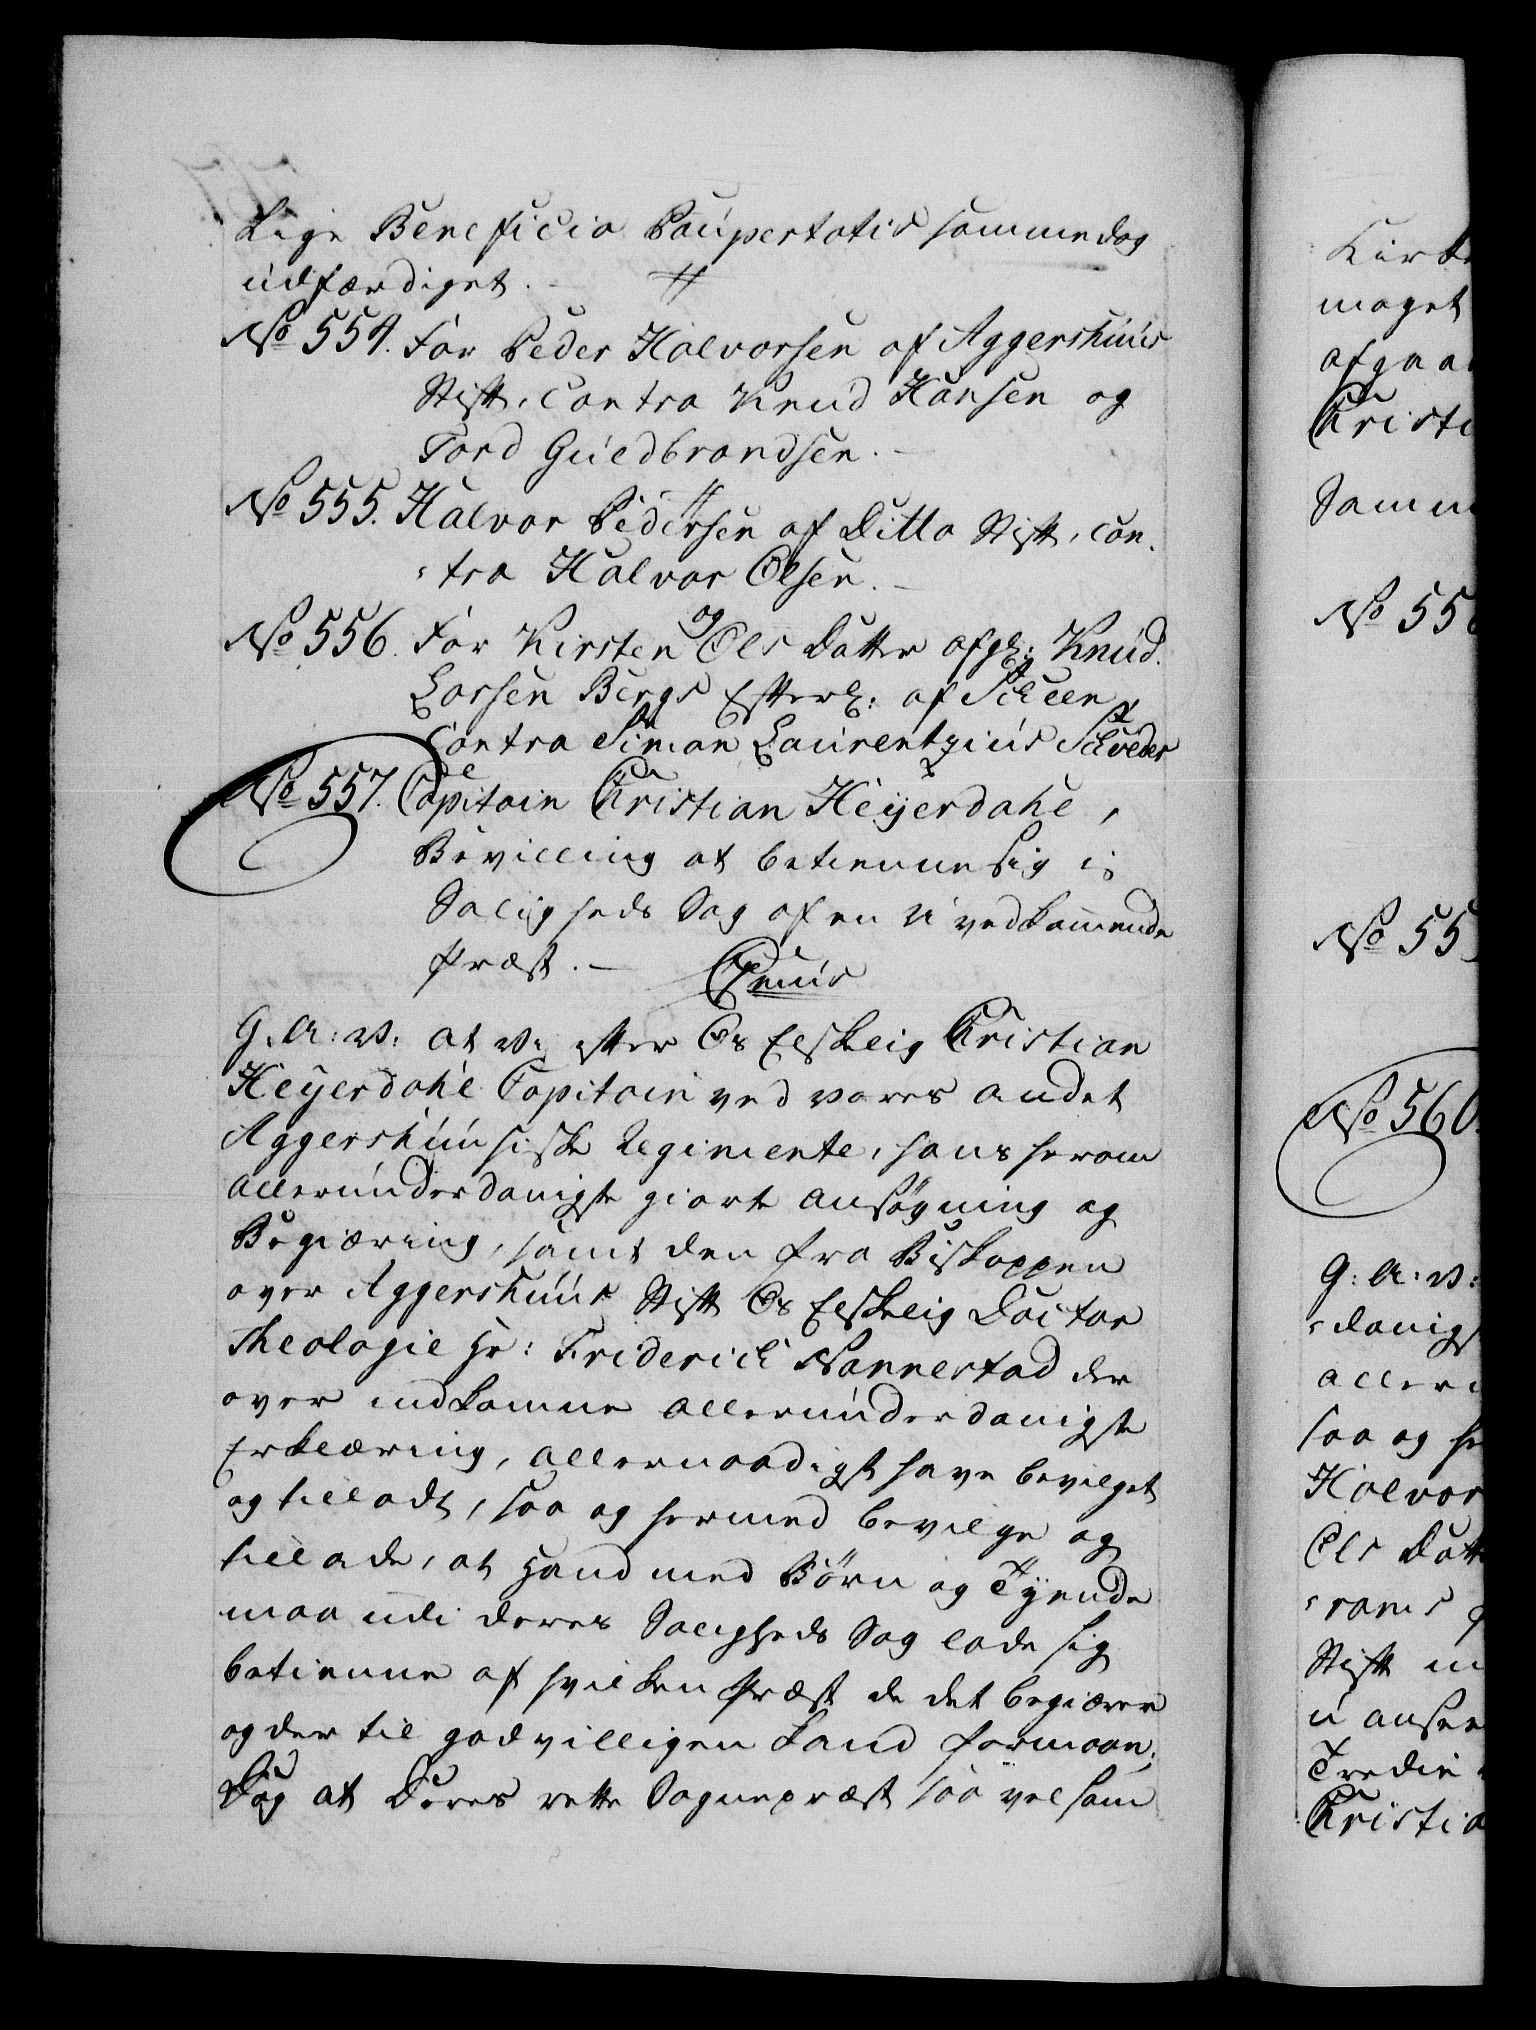 Lige Beneficia Paupertatis sammedag
udfærdiget. —
No 554. For Peder Halvorsen af Aggershuus
Stift, contra Knud Hansen og
Tord Guldbrandsen. —
No 555. Halvor Pedersen af Ditto Stift, con-
-tra Halvor Olsen. —
No 556. For Kirsten Ols datter og afgl: Knud
Larsen Bergs Efterl: af Scheen
Contra Simon Laurentzius
No 557. Capitain Christian Heÿerdahl,
Bevilling at betienne sig i
Saligheds Sag af en uvedkommende
Præst. —
G: A: V: at Vi efter Os Elskelig Christian
Heÿerdahl Capitain ved vores andet
Aggershuusiske Regimente, hans herom
allerunderdanigste giorte ansøgning og
Begiæring, samt den fra Biskoppen
over Aggershuus Stift Os Elskelig Doctor
Theologie Hr: Friderich Nannestad der
over indkomne allerunderdanigste
Erklæring, allernaadigst have bevilget
og tilladt, saa og hermed bevilge og
tillade, at Hand med Børn og Tÿende
maa udi deres Saligheds Sag lade sig
betienne af hvilken Præst de det begiærer
og der til godvilligen kand formaae;
Dog at Deres rette Sognepræst saavelsom
Kirk
maget
afgaa
Christi
Samm
No 55
No 55
No 560.
G: A: V:
-danigs
aller
saa og he
Halvor
Ols Datt
Stift
u anseet
Tredie
Christia